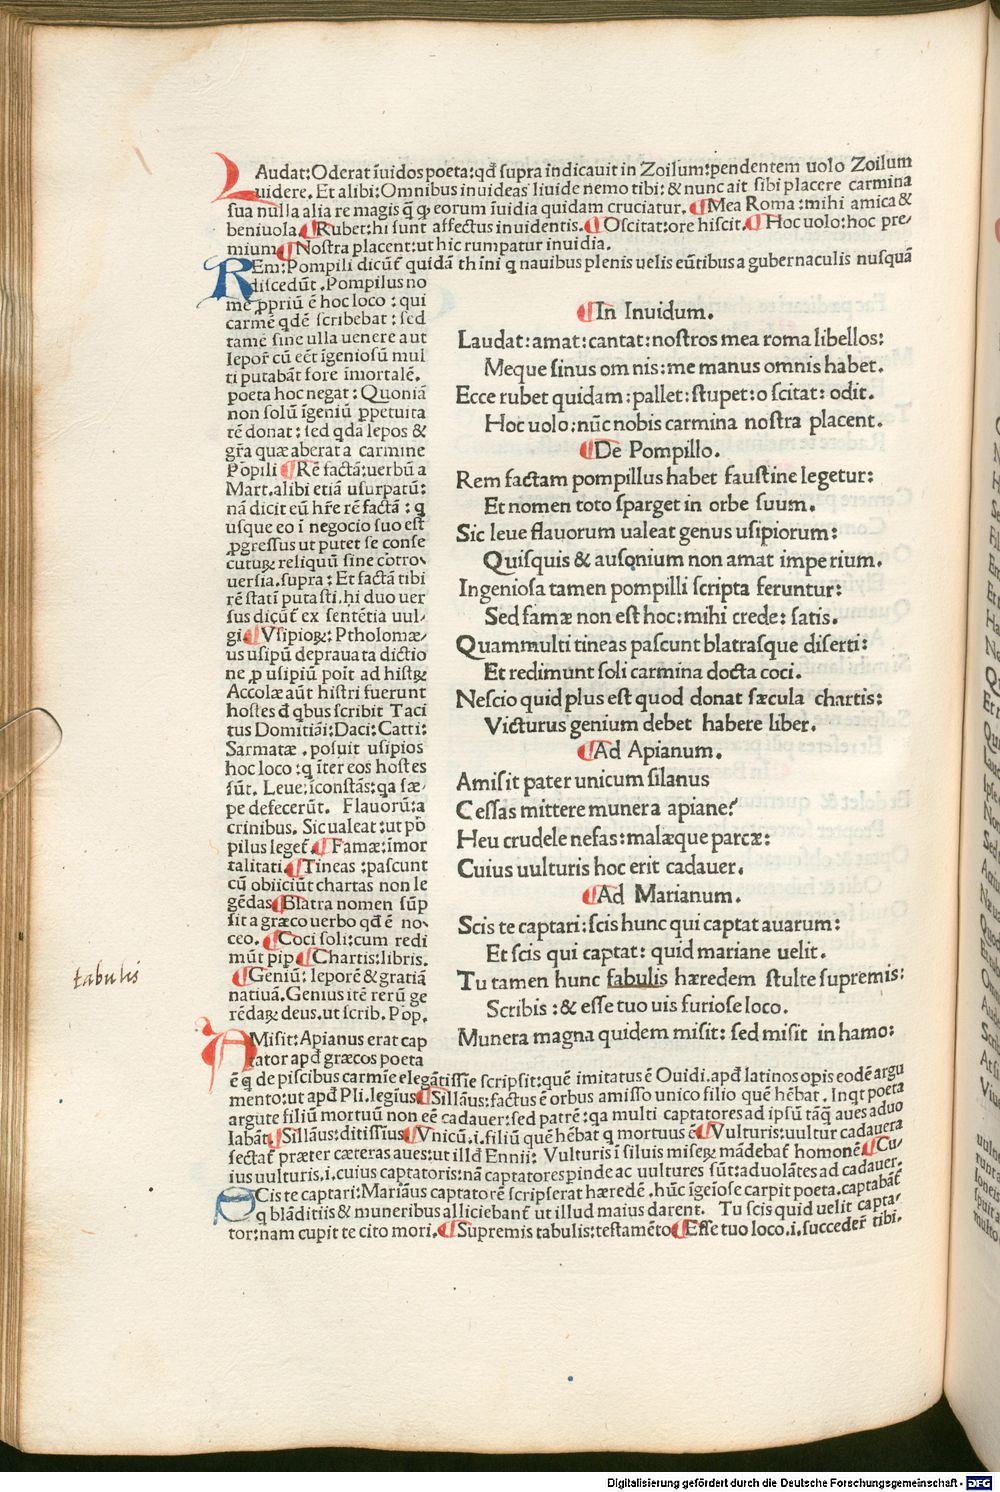 LAudat: Oderat īuidos poeta: qđ supra indicauit in Zoilum: pendentem uolo Zoilum
uidere. Et alibi: Omnibus inuideas liuide nemo tibi: & nunc ait sibi placere carmina
sua nulla alia re magis q̄ ꝙ eorum īuidia quidam cruciatur. ¶Mea Roma: mihi amica &
beniuola. ¶Rubet: hi sunt affectus inuidentis. ¶Oscitat: ore hiscit. ¶Hoc uolo: hoc pre/
mium. ¶Nostra placent: ut hic rumpatur inuidia.
REm: Pompili dicūt̃ quidā thīni q nauibus plenis uelis eūtibus a gubernaculis nusquā
discedūt. Pompilus no
me ꝓpriū ē hoc loco: qui
carmē qdē scribebat: sed
tamē sine ulla uenere aut
lepor̃ cū eēt īgeniosū mul
ti putabāt fore īmortalē.
poeta hoc negat: Quoniā
non solū īgeniū ꝑpetuita
tē donat: sed qdā lepos &
gr̄a quæ aberat a carmine
Pōpili ¶Rē factā: uerbū a
Mart. alibi etiā usurpatū:
nā dicit eū hr̄e rē factā: q
usque eo ī negocio suo est
ꝓgressus ut putet se conse
cutuꝝ reliquū sine cōtro/
uersia. supra: Et factā tibi
rē statī putasti. hi duo uer
sus dicūt̃ ex sentētia uul/
gi ¶Vsipioꝝ: Ptholomæ/
us usipū deprauata dictio
ne ꝓ usipiū poīt ad histꝝ
Accolæ aūt histri fuerunt
hostes đ qbus scribit Taci
tus Domitiāi: Daci: Catti:
Sarmatæ. posuit usipios
hoc loco: q īter eos hostes
sūt. Leue: īconstās: qa sæ/
pe defecerūt. Flauorū: a
crinibus. Sic ualeat: ut pō
pilus leget̃. ¶Famæ: imor
talitati. ¶Tineas: pascunt
cū obiiciūt chartas non le
gēdas. ¶Blatra nomen sūp
sit a græco uerbo qđ ē no/
ceo. ¶Coci soli: cum redi
mūt pip ¶Chartis: libris.
¶Geniū: leporē & gratiā
natiuā. Genius itē rerū ge
rēdaꝝ deus. ut scrib. Pop.
¶In Inuidum.
Laudat: amat: cantat: nostros mea roma libellos:
Meque sinus om nis: me manus omnis habet.
Ecce rubet quidam: pallet: stupet: o scitat: odit.
Hoc uolo: nūc nobis carmina nostra placent.
¶De Pompillo.
Rem factam pompillus habet faustine legetur:
Et nomen toto sparget in orbe suum.
Sic leue flauorum ualeat genus usipiorum:
Quisquis & ausonium non amat imperium.
Ingeniosa tamen pompilli scripta feruntur:
Sed famæ non est hoc: mihi crede: satis.
Quammulti tineas pascunt blatrasque diserti:
Et redimunt soli carmina docta coci.
Nescio quid plus est quod donat sæcula chartis:
Victurus genium debet habere liber.
¶Ad Apianum.
Amisit pater unicum silanus
Cessas mittere munera apiane?
Heu crudele nefas: malæque parcæ:
Cuius uulturis hoc erit cadauer.
¶Ad Marianum.
Scis te captari: scis hunc qui captat auarum:
Et scis qui captat: quid mariane uelit.
Tu tamen hunc fabulis hæredem stulte supremis:
Scribis: & esse tuo uis furiose loco.
Munera magna quidem misit: sed misit in hamo:
tabulis
AMisit: Apianus erat cap
tator apđ græcos poeta
ē q de piscibus carmīe elegātissīe scripsit: quē imitatus ē Ouidi. apđ latinos opis eodē argu
mento: ut apđ Pli. legius ¶Sillāus: factus ē orbus amisso unico filio quē hēbat. Inqt poeta
argute filiū mortuū non eē cadauer: sed patrē: qa multi captatores ad ipsū tāq̄ aues aduo
labāt ¶Sillāus: ditissīus ¶Vnicū. i. filiū quē hēbat q mortuus ē ¶Vulturis: uultur cadauera
sectat̃ præter cæteras aues: ut illđ Ennii: Vulturis ī siluis miseꝝ mādebat̃ homonē ¶Cu/
ius uulturis. i. cuius captatoris: nā captatores pinde ac uultures sūt: aduolātes ad cadauer.
SCis te captari: Mariāus captatorē scripserat hæredē. hūc īgeīose carpit poeta. captabāt̃
q blāditiis & muneribus alliciebant̃ ut illud maius darent. Tu scis quid uelit capta/
tor: nam cupit te cito mori. ¶Supremis tabulis: testamēto ¶Esse tuo loco. i. succeder̃ tibi.
Digitalisierung gefördert durch die Deutsche Forschungsgemeinschaft - DFG